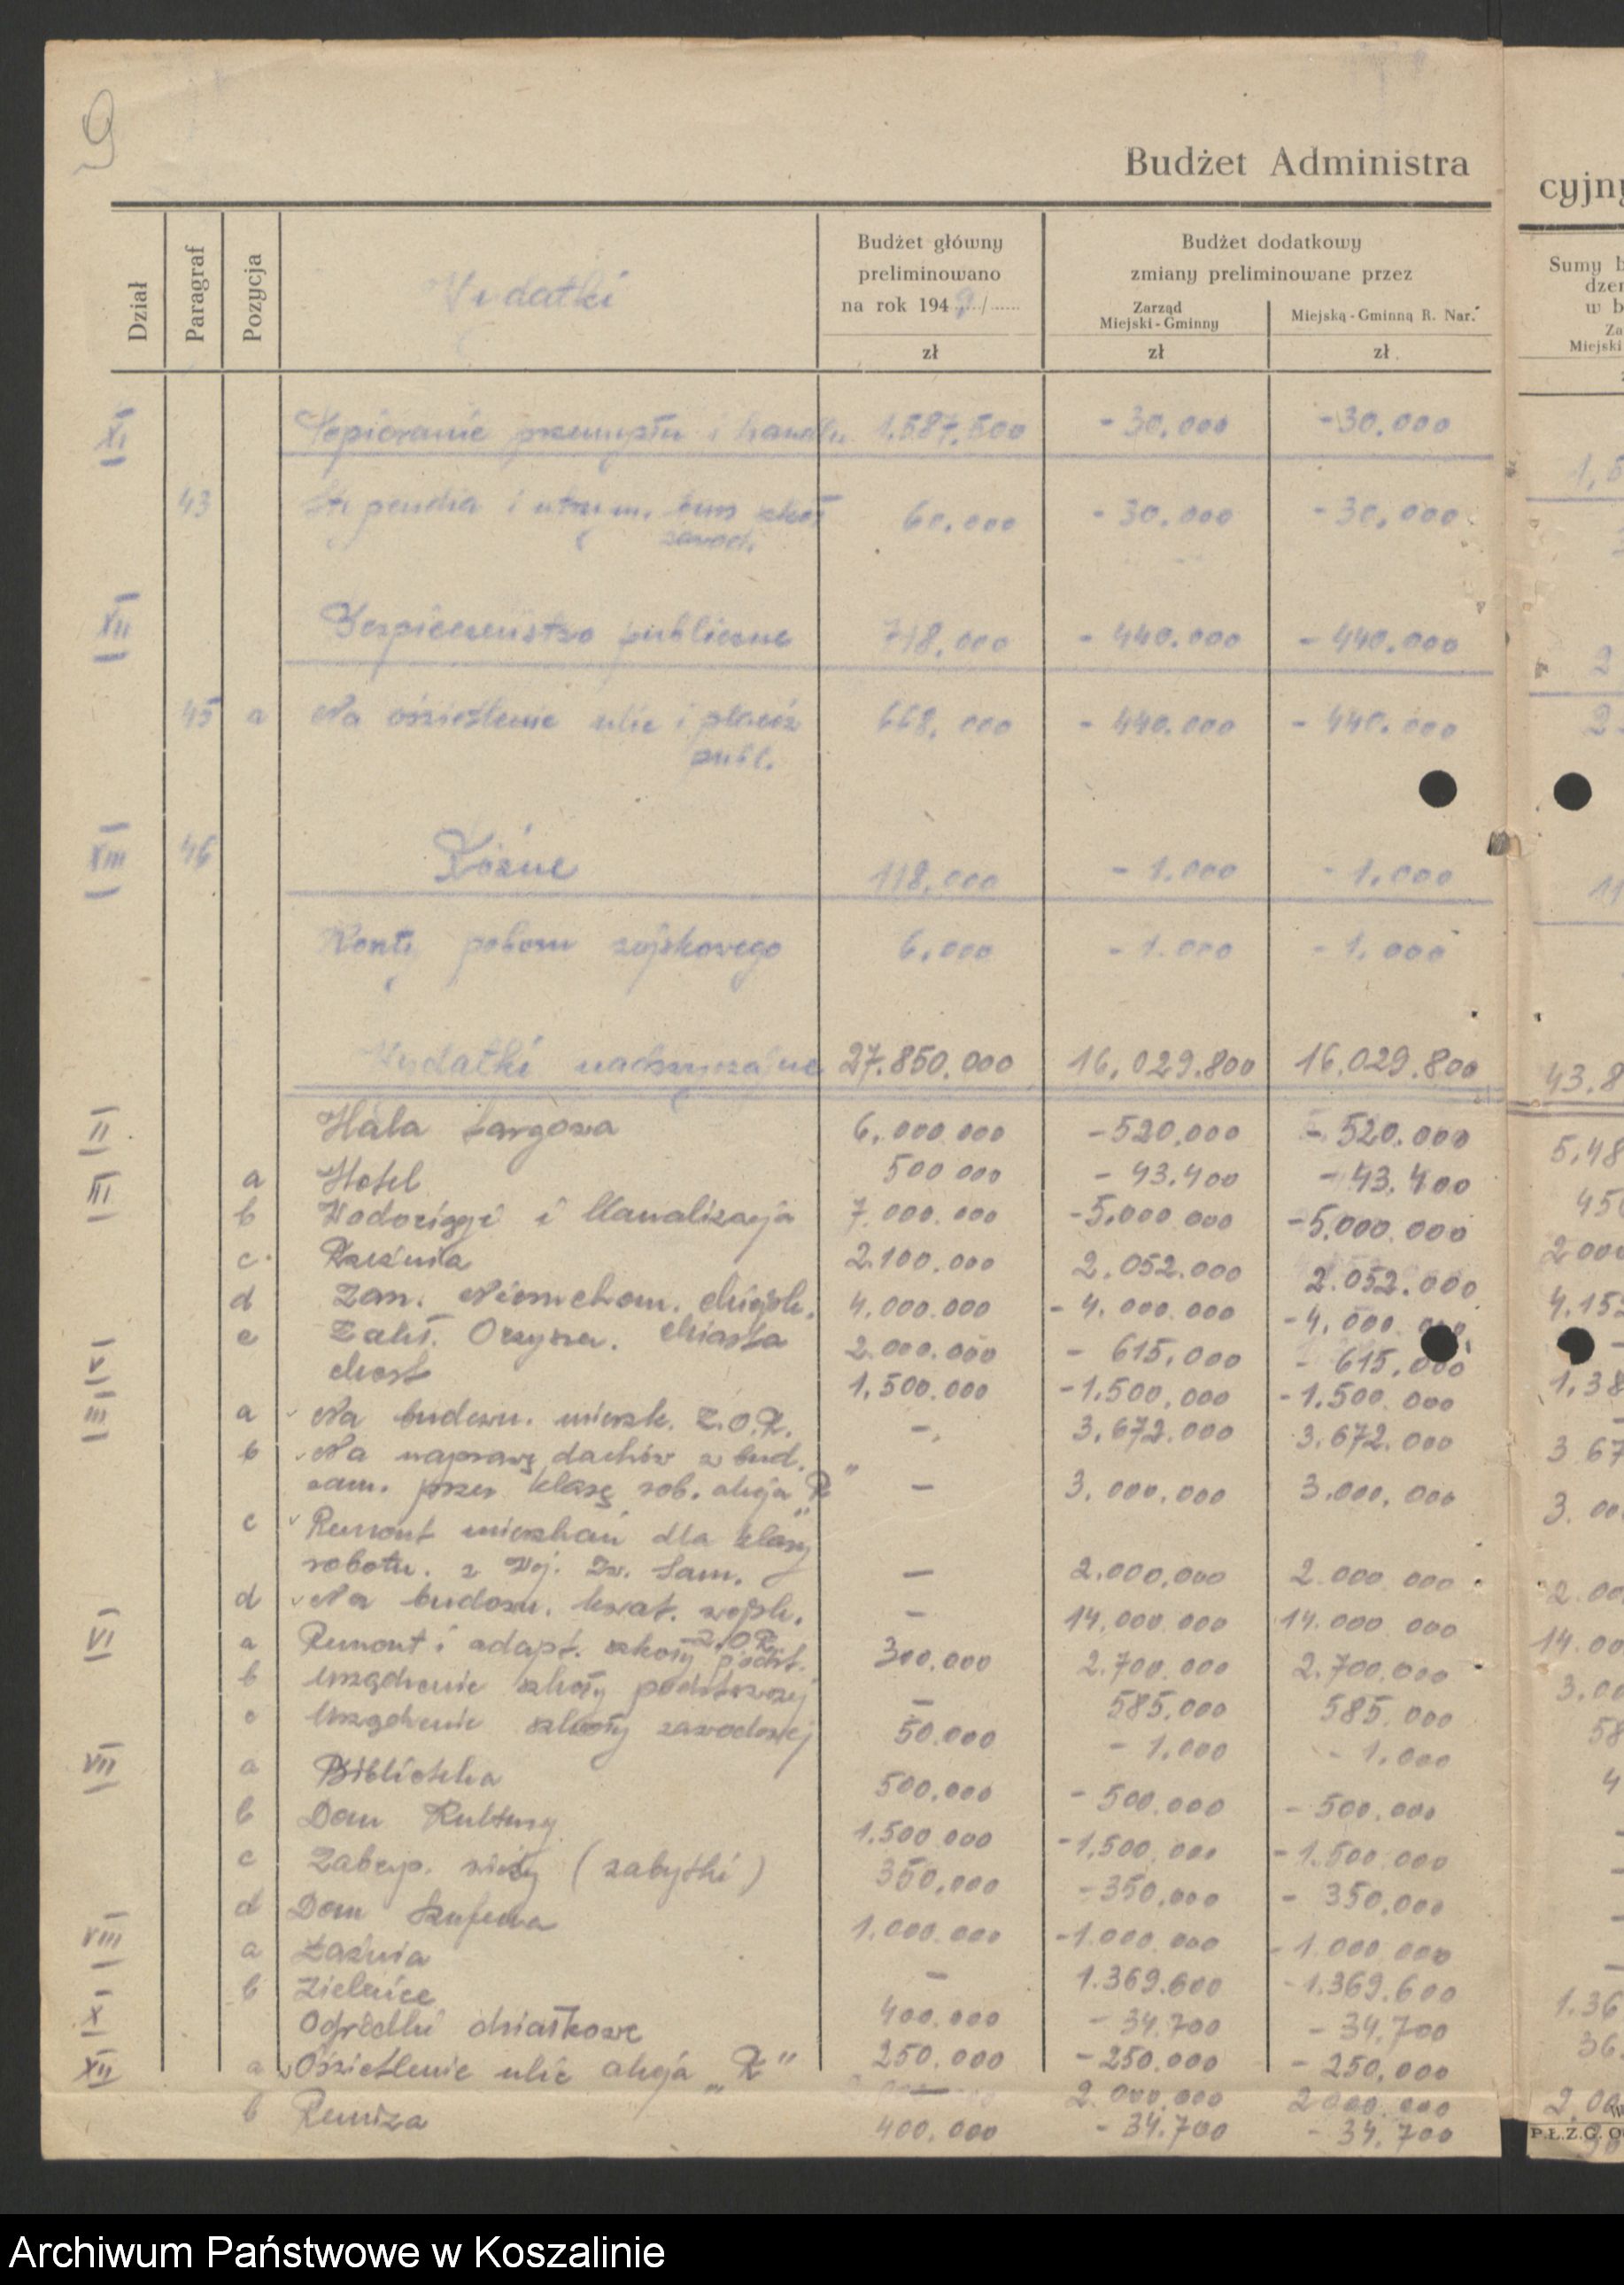 9
Budżet Administra
cyjny
Dział
Paragraf
Pozycja
Wydatki
Budżet główny
preliminowano
na rok 194 9/
zł
Budżet dodatkowy
zmiany preliminowane przez
Zarząd
Miejski-Gminny
zł
Miejską-Gminną R. Nar.
zł
Sumy
w b
Miejski
XI Popieranie przemysłu i handlu 1.587.500 - 30.000 - 30.000
43 Stypendia i utrzym. burs szkół 60.000 - 30.000 - 30.000
zawod.
XII Bezpieczeństwo publiczne 718.000 - 440.000 - 440.000
45 a Na oświetlenie ulic i placów 668.000 - 440.000 - 440.000
publ.
XIII 46 Różne 118.000 - 1.000 - 1.000
Koszty poboru wojskowego 6.000 - 1.000 - 1.000
Wydatki nadzwyczajne 27.850.000 16.029.800 16.029.800 43.8
II Hala targowa 6.000.000 - 520.000 - 520.000 5.48
III a Hotel 500 000 - 43.400 - 43.400 45
b Wodociągi i Kanalizacja 7.000.000 - 5.000.000 - 5.000.000 2 000
c Rzeźnia 2.100.000 2.052.000 2.052.000 4.152
d Zarz. Nieruchom. Miejsk. 4.000.000 - 4.000.000 - 4.000.000
e Zakł. Oczyszcz. Miasta 2.000.000 - 615.000 - 615.000 1.38
IV Most 1.500.000 - 1.500.000 - 1.500.000
a Na budown. mieszk. Z.O.R. - 3.672.000 3.672.000 3 67
b Na naprawę dachów w bud.
zam. przez klasę rob. akcja "R" - 3.000.000 3.000.000 3.00
c Remont mieszkań dla klasy
robotn. z Woj. Zw. Sam. - 2.000.000 2.000.000 2.00
d Na budown. kwat. wojsk. - 14.000.000 14.000.000 14.00
Z.O.R.
VI a Remont i adapt. szkoły podst. 300.000 2.700.000 2.700.000 3.00
b Urządzenie szkoły podstawowej - 585.000 585.000 58
c Urządzenie szkoły zawodowej 50.000 - 1.000 - 1.000 4
VII a Biblioteka 500.000 - 500.000 - 500.000
b Dom Kultury 1.500.000 - 1.500.000 - 1.500.000
c Zabezp. wieży (zabytki) 350.000 - 350.000 - 350.000
d Dom 1.000.000 - 1.000.000 - 1.000.000
VIII a Łaźnia - 1.369.600 - 1.369.600 1.36
b Zieleńce 400.000 - 34.700 - 34.700 36
X Ogródki działkowe 250.000 - 250.000 - 250.000
XII a Oświetlenie ulic akcja „R" - 2.000.000 2.000.000 2.00
b Remiza 400.000 - 34.700 - 34.700
P.Ł.Z.G. O
Archiwum Państwowe w Koszalinie